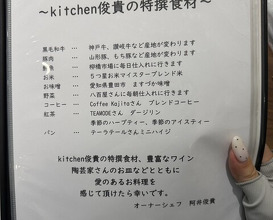 ～kitchen俊貴の特撰食材～
黒毛和牛 … 神戸牛、讃岐牛など産地が変わります
豚肉 … 山形豚、もち豚など産地が変わります
鮮魚 … 柳橋市場に毎日仕入れに行きます
お米 … 5つ星お米マイスターブレンド米
お味噌 … 愛知県豊田市 ますづか味噌
野菜 … 八百屋さんに毎朝仕入れに行きます
コーヒー … Coffee Kajitaさん ブレンドコーヒー
紅茶 … TEAMODEさん ダージリン
季節のハーブティー、季節のアイスティー
パン … テーラテールさんミニハイジ
kitchen俊貴の特撰食材、豊富なワイン
陶芸家さんのお皿などとともに
愛のあるお料理を
感じて頂けたら幸いです。
オーナーシェフ 阿井俊貴